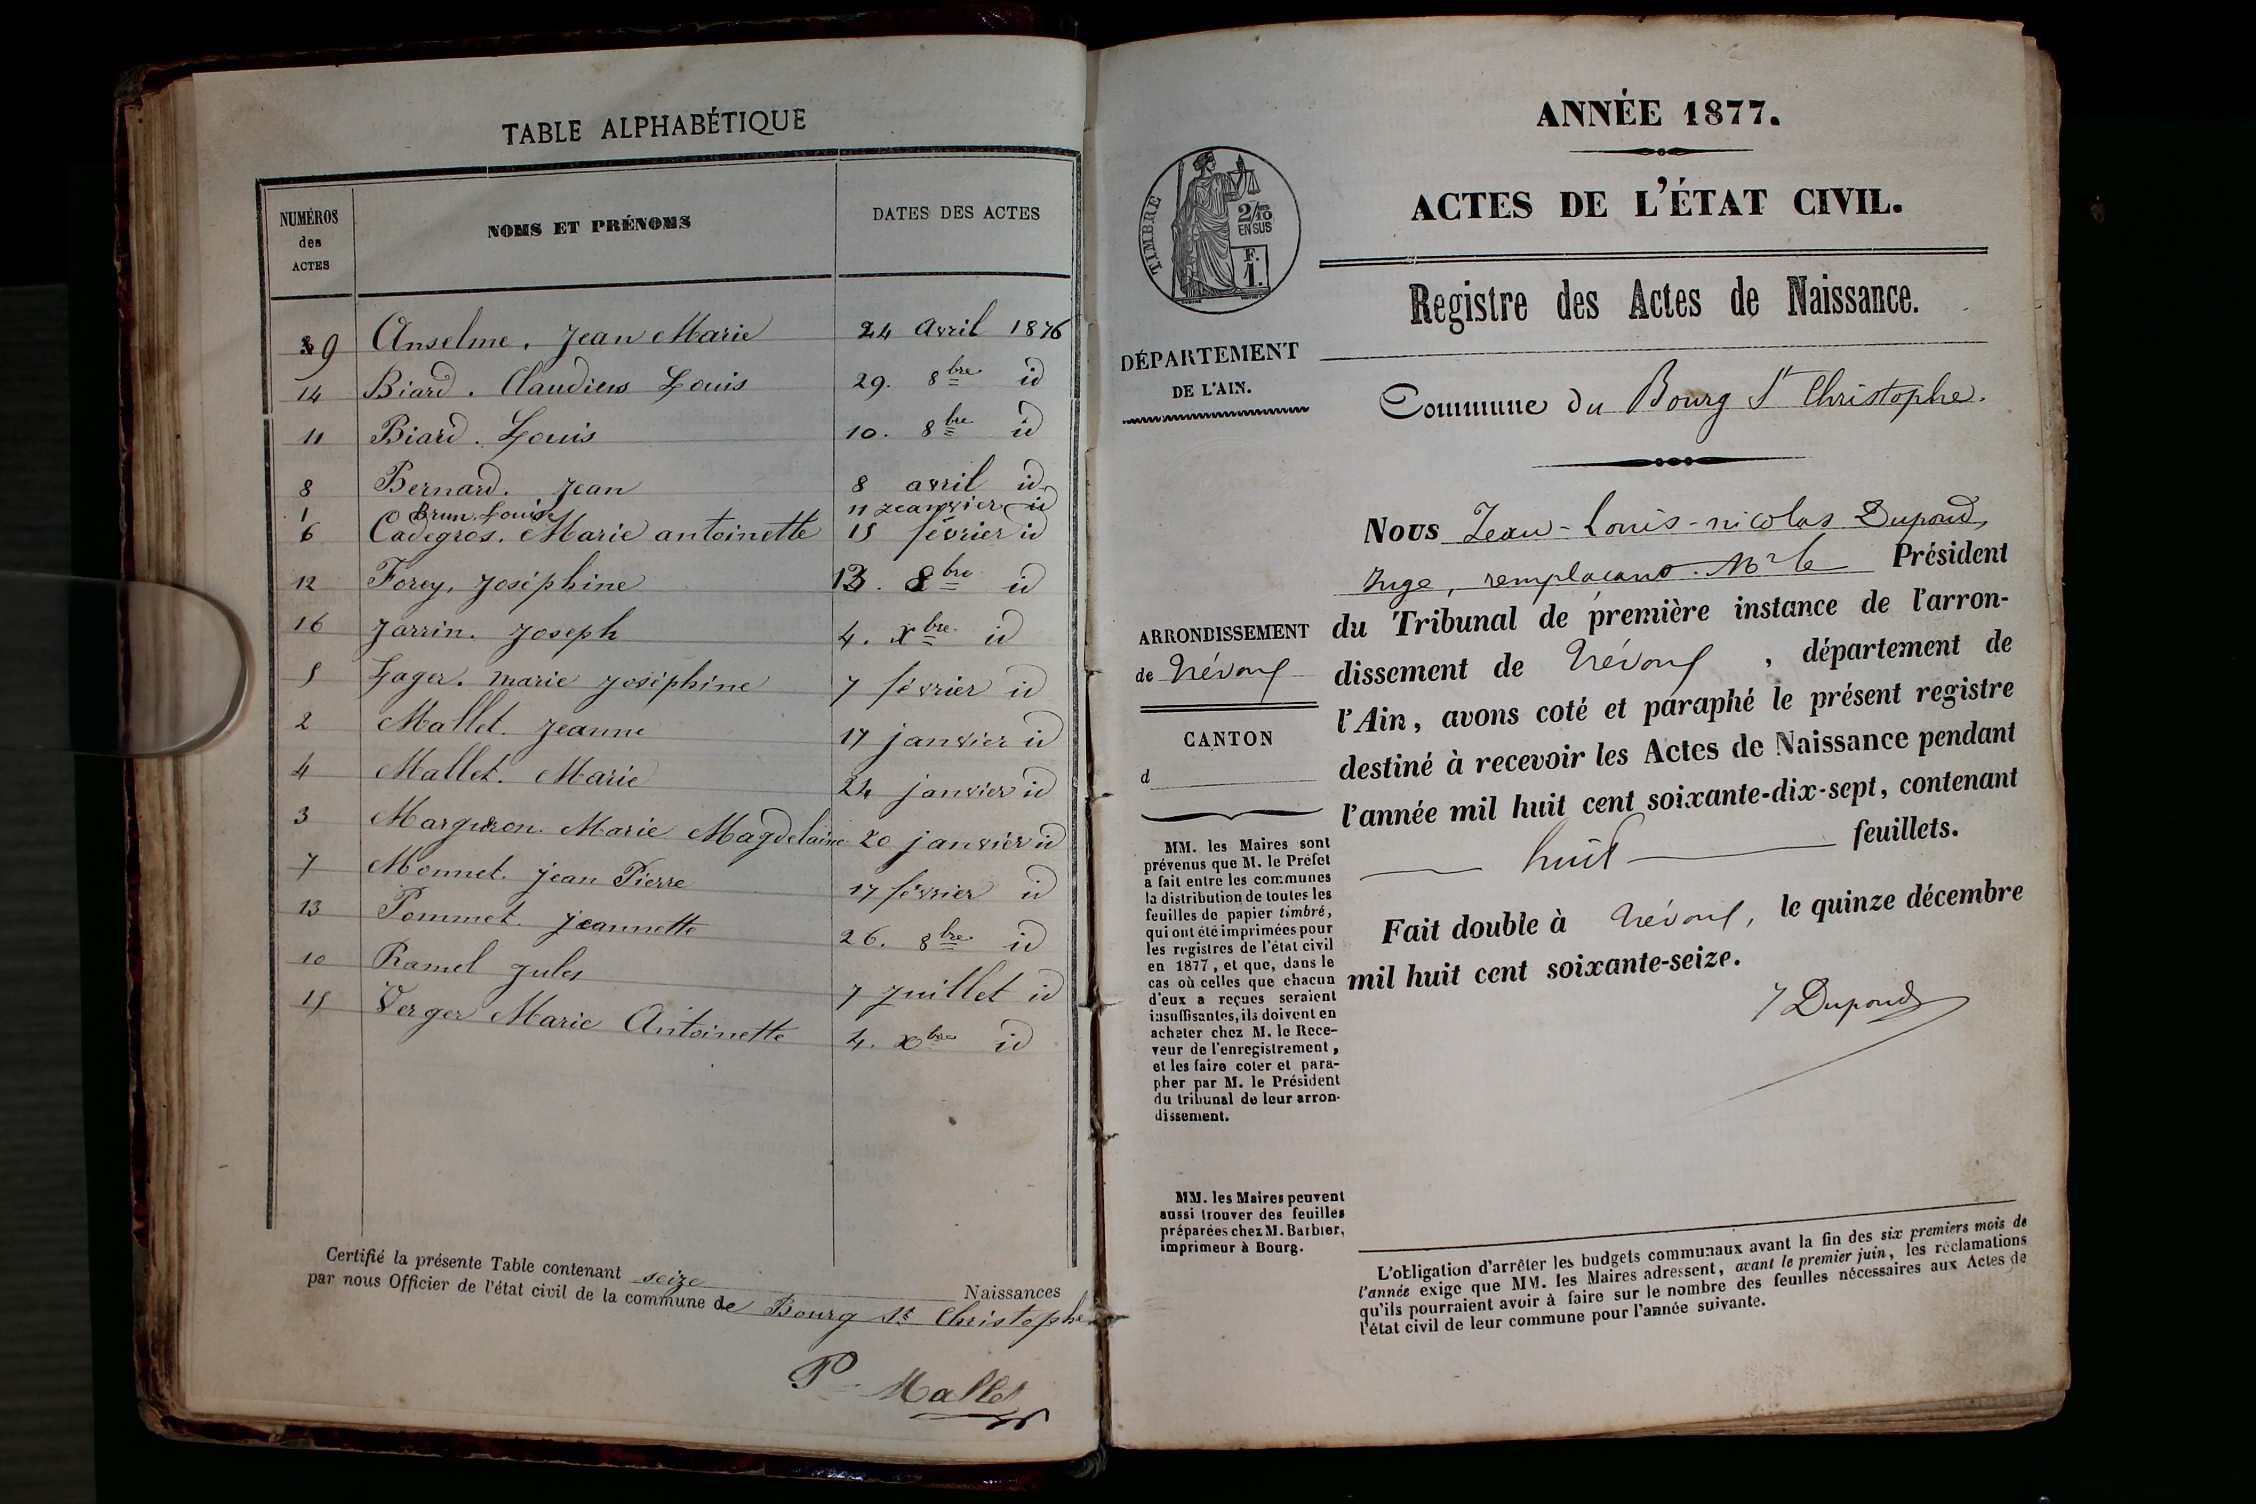 TABLE ALPHABÉTIQUE
NUMÉROS
des
ACTES
NOMS ET PRÉNOMS
DATES DES ACTES
9 Anselme. Jean Marie 24 avril 1876
14 Biard. Claudius Louis 29. 8bre id
11 Biard. Louis 10. 8bre id
8 Bernard. Jean 8 avril id
1 Brun. Louis 11 janvier id
6 Cadegros. Marie antoinette 15 février id
12 Forey. Joséphine 13. 8bre id
16 Jarrin. Joseph 4. Xbre id
5 Lager. marie joséphine 7 février id
2 Mallet. Jeanne 17 janvier id
4 Mallet. Marie 24 janvier id
3 Marguron. Marie Magdelaine 20 janvier id
7 Monnet. jean Pierre 17 février id
13 Pommet. jeannette 26. 8bre id
10 Ramel Jules 7 Juillet id
15 Verger Marie Antoinette 4. Xbre id
Certifié la présente Table contenant seize Naissances
par nous Officier de l'état civil de la commune de Bourg St Christophe
P Mallet
ANNÉE 1877.
ACTES DE L'ÉTAT CIVIL.
TIMBRE
2/10
EN SUS
F.
1.
Registre des Actes de Naissance.
DÉPARTEMENT
DE L'AIN.
Commune du Bourg St Christophe.
Nous Jean-Louis-nicolas Dupond,
Juge, remplaçant Mr le Président
du Tribunal de première instance de l'arron-
dissement de Trévoux, département de
l'Ain, avons coté et paraphé le présent registre
destiné à recevoir les Actes de Naissance pendant
l'année mil huit cent soixante-dix-sept, contenant
huit feuillets.
Fait double à Trévoux, le quinze décembre
mil huit cent soixante-seize.
J Dupond
ARRONDISSEMENT
de Trévoux
CANTON
d
MM. les Maires sont
prévenus que M. le Préfet
a fait entre les communes
la distribution de toutes les
feuilles de papier timbré,
qui ont été imprimées pour
les registres de l'état civil
en 1877, et que, dans le
cas où celles que chacun
d'eux a reçues seraient
insuffisantes, ils doivent en
acheter chez M. le Rece-
veur de l'enregistrement,
et les faire coter et para-
pher par M. le Président
du tribunal de leur arron-
dissement.
MM. les Maires peuvent
aussi trouver des feuilles
préparées chez M. Barbier,
imprimeur à Bourg.
L'obligation d'arrêter les budgets communaux avant la fin des six premiers mois de
l'année exige que MM. les Maires adressent, avant le premier juin, les réclamations
qu'ils pourraient avoir à faire sur le nombre des feuilles nécessaires aux Actes de
l'état civil de leur commune pour l'année suivante.